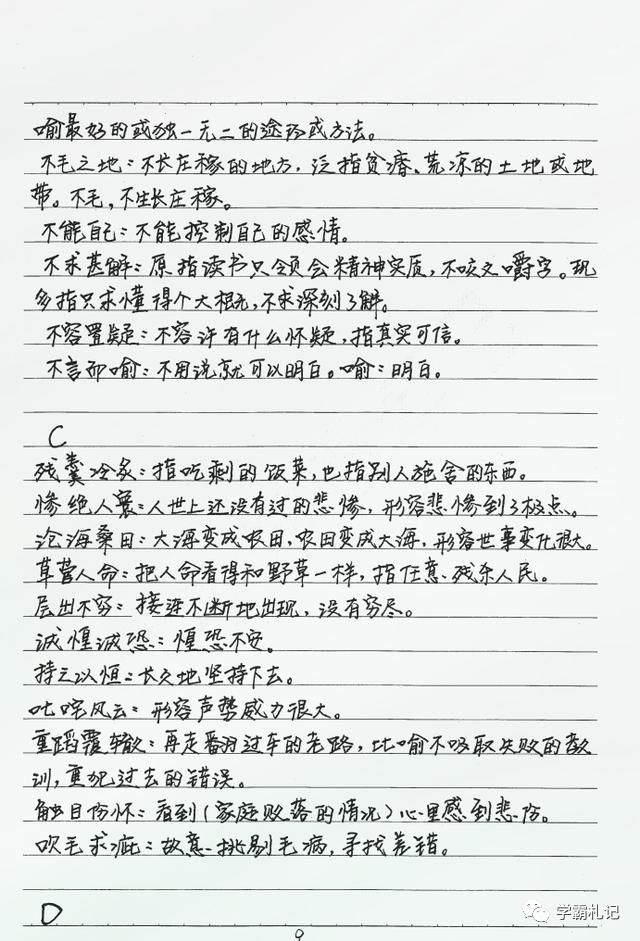 喻最好的或独一无二的途径或方法。
不毛之地：不长庄稼的地方，泛指贫瘠、荒凉的土地或地
带。不毛，不生长庄稼。
不能自已：不能控制自己的感情。
不求甚解：原指读书只领会精神实质，不咬文嚼字。现
多指只求懂得个大概，不求深刻了解。
不容置疑：不容许有什么怀疑，指真实可信。
不言而喻：不用说就可以明白。喻：明白。
C
残羹冷炙：指吃剩的饭菜，也指别人施舍的东西。
惨绝人寰：人世上还没有过的悲惨，形容悲惨到了极点。
沧海桑田：大海变成农田，农田变成大海，形容世事变化很大。
草菅人命：把人命看得和野草一样，指任意残杀人民。
层出不穷：接连不断地出现，没有穷尽。
诚惶诚恐：惶恐不安。
持之以恒：长久地坚持下去。
叱咤风云：形容声势威力很大。
重蹈覆辙：再走翻过车的老路，比喻不吸取失败的教
训，重犯过去的错误。
触目伤怀：看到（家庭败落的情况）心里感到悲伤。
吹毛求疵：故意挑剔毛病，寻找差错。
D
9
学霸札记